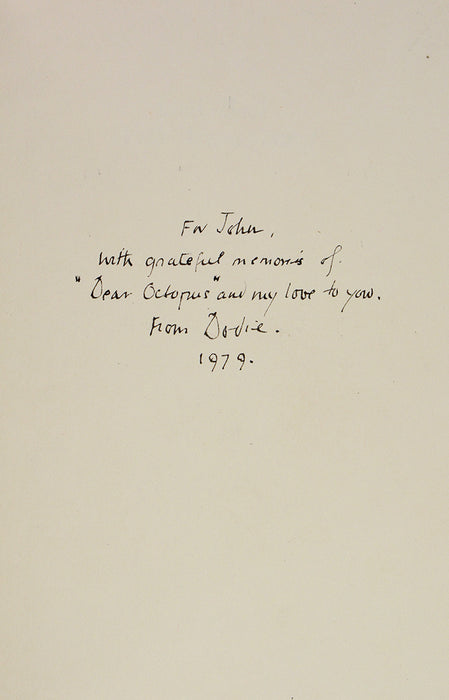 For John,
with grateful memories of.
"Dear Octopus" and my love to you.
From Dodie.
1979.